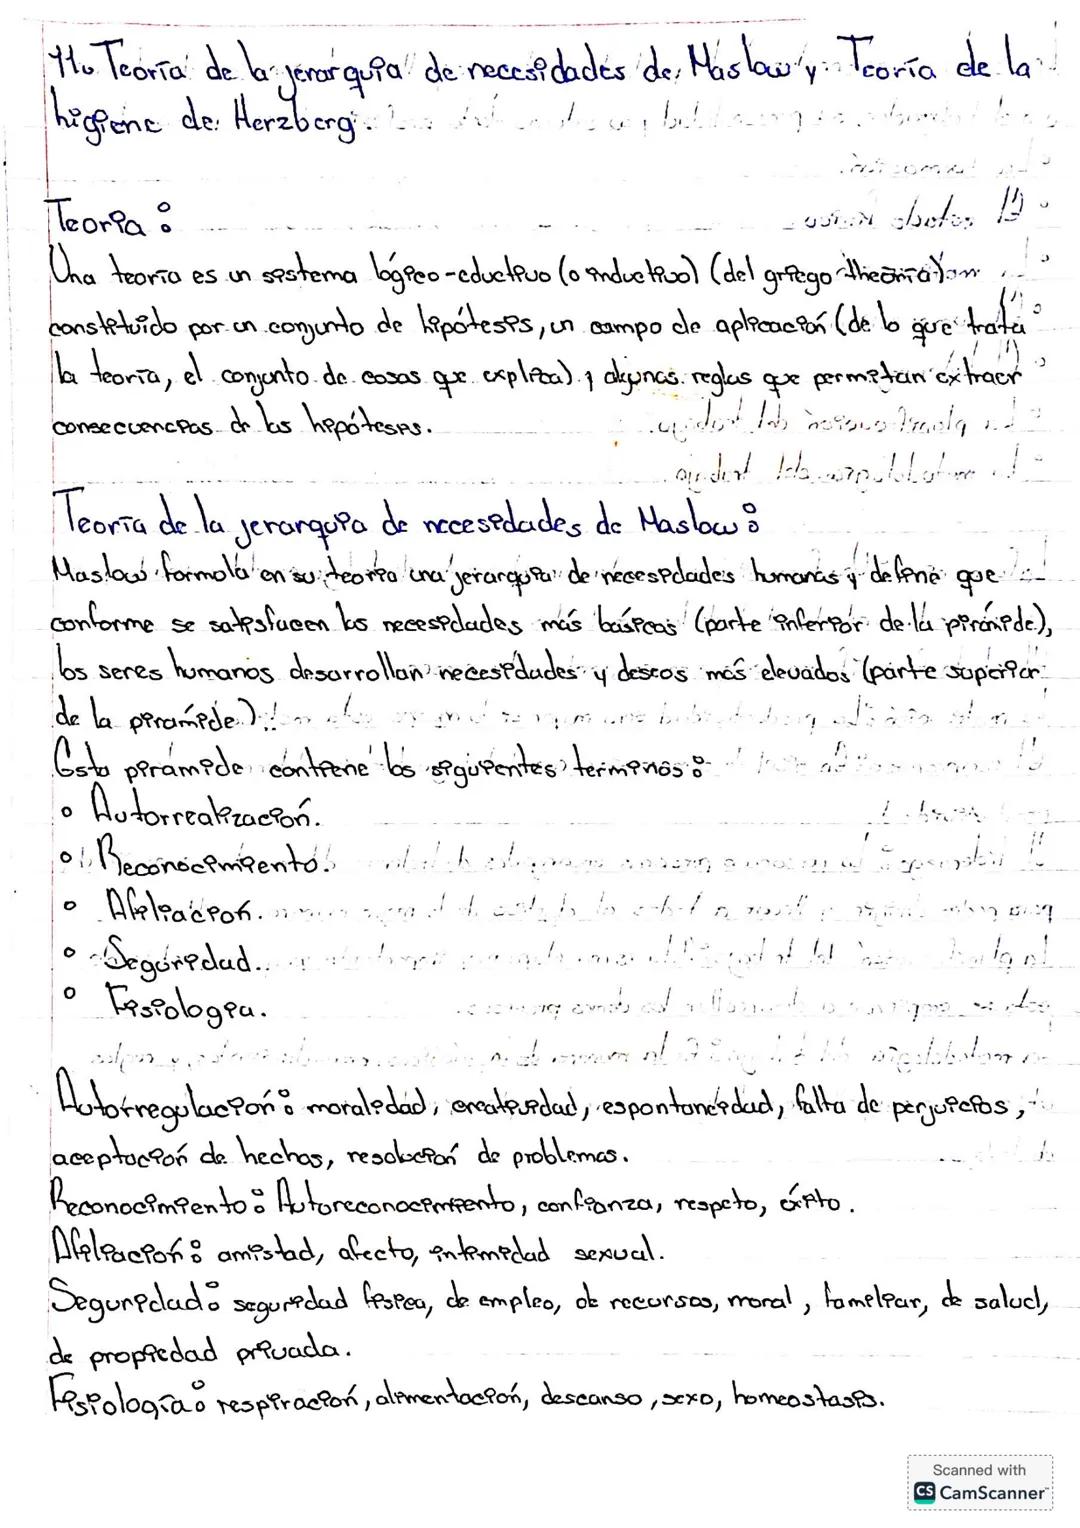 11. Teoría de la jerarquía de necesidades de Maslow y Teoría de la
higiene de Herzberg.
Teoría:
Una teoría es un sistema lógico-eductivo (o inductivo) (del griego theoria)
constituido por un conjunto de hipótesis, un campo de aplicación (de lo que trata
la teoría, el conjunto de cosas que explica) y algunas reglas que permitan extraer
consecuencias de las hipótesis.
Teoría de la jerarquía de necesidades de Maslow:
Maslow formola en su teoria una jerarquía de necesidades humanas y define que
conforme se satisfacen las necesidades más básicas (parte inferior de la pirámide),
los seres humanos desarrollan necesidades y deseos más elevados (parte superior
de la pirámide)
Esta pirámide contiene los siguientes terminos:
• Autorrealización.
• Reconocimiento.
• Afiliación.
• Seguridad.
• Fisiologia.
Autorregulación: moralidad, creatividad, espontaneidad, falta de perjuicios,
aceptación de hechos, resolución de problemas.
Reconocimiento: Autoreconocimiento, confianza, respeto, éxito.
Afiliación: amistad, afecto, intimidad sexual.
Seguridad: seguridad física, de empleo, de recursos, moral, familiar, de salud,
de propiedad privada.
Fisiología: respiración, alimentación, descanso, sexo, homeostasis.
Scanned with
CS CamScanner